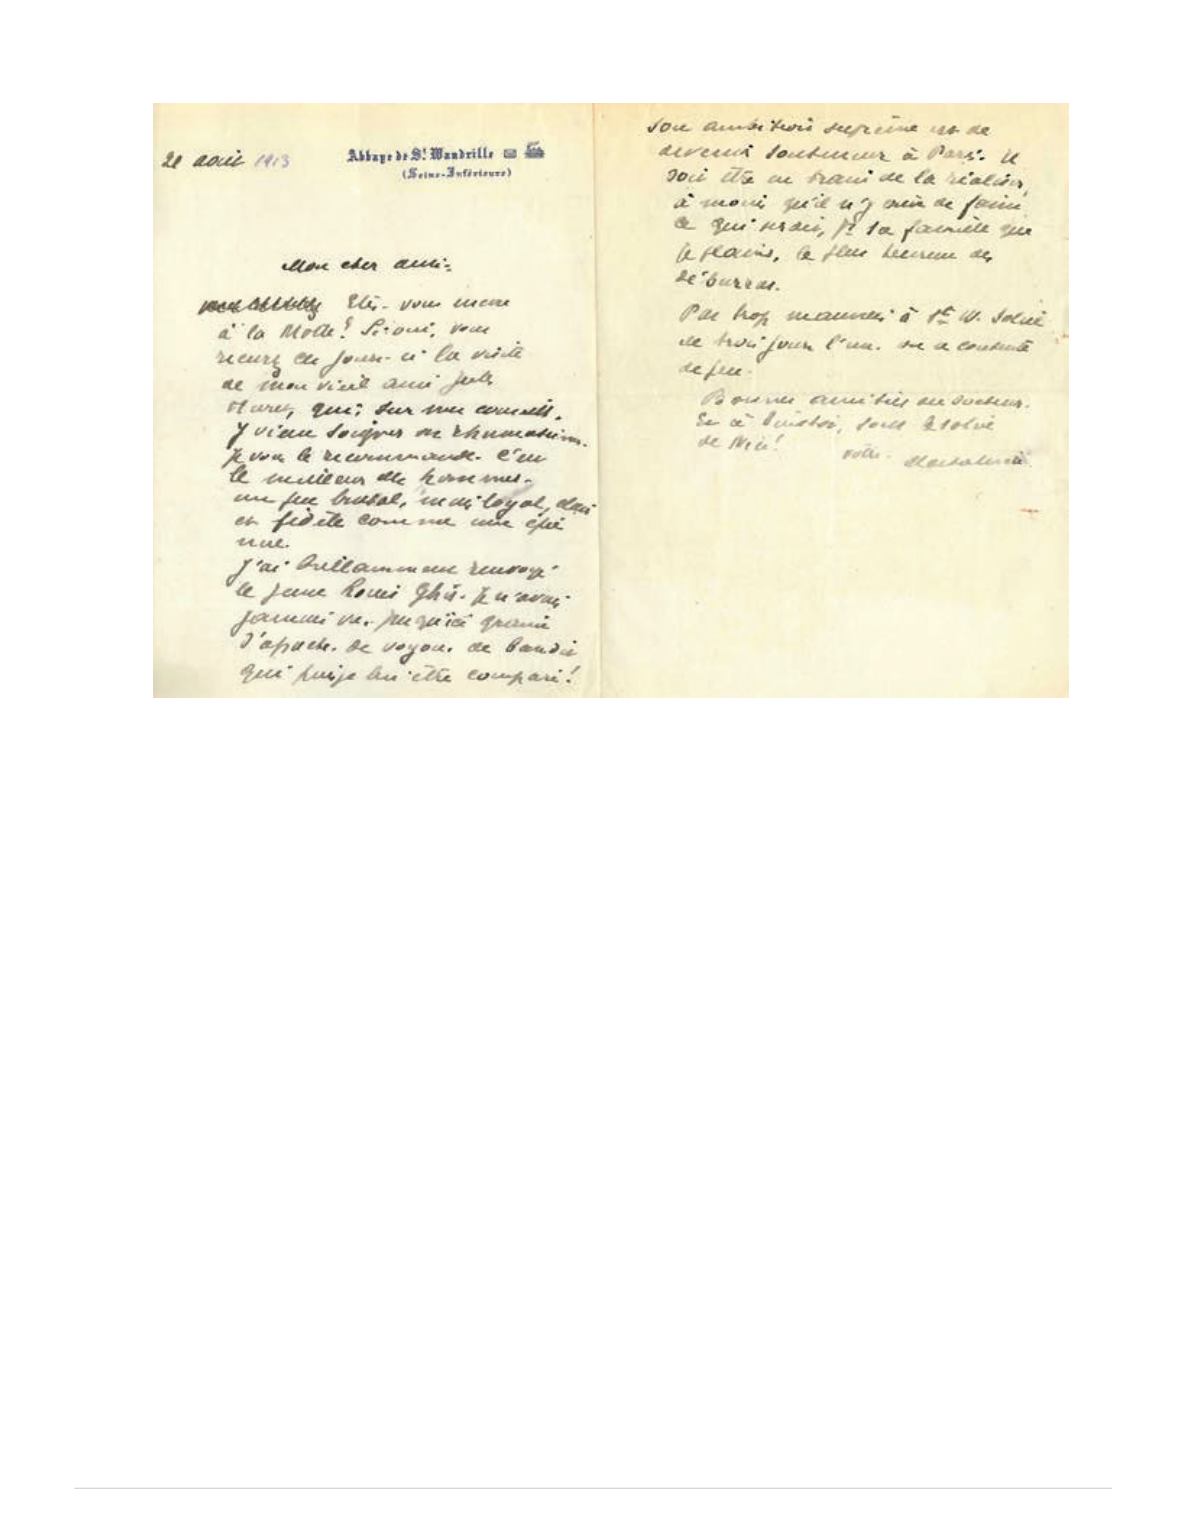 21 août 1913
Abbaye de St Wandrille
(Seine-Inférieure)
Mon cher ami:
Etes-vous encore
à la Motte? Si oui, vous
recevrez ces jours-ci la visite
de mon vieil ami Jules
Huret, qui, sur mon conseil,
y vient soigner ses rhumatismes.
Je vous le recommande. C'est
le meilleur des hommes.
un peu brutal, mais loyal, clair
et fidèle comme une épée
nue.
J'ai brillamment renvoyé
le jeune Louis Ghis. Je n'avais
jamais vu jusqu'ici graine
d'apache. de voyou. de bandit
qui puisse lui être comparé!
Son ambition suprême est de
devenir souteneur à Paris. Il
doit être en train de la réaliser,
à moins qu'il n'y meure de faim
ce qui serait, pr sa famille que
je plains, le plus heureux des
débarras.
Pas trop mauvais à St W. Soleil
de trois jours l'un. on se contente
de peu.
Bonnes amitiés au docteur.
Et à bientôt, sous le soleil
de Nice!
votre
Maeterlinck